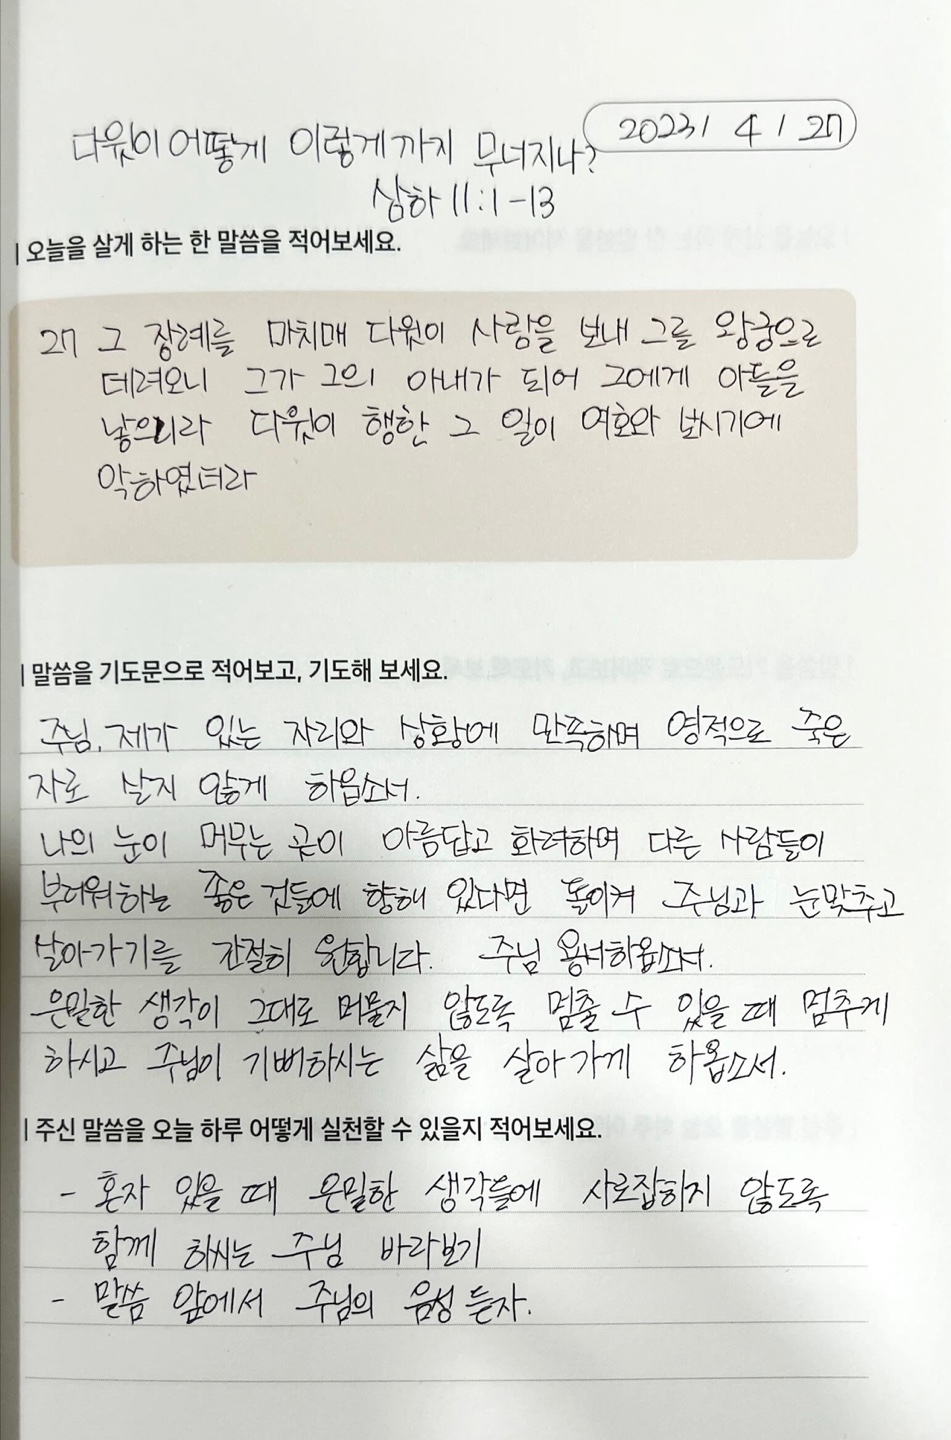 2023 / 4 / 27
다윗이 어떻게 이렇게까지 무너지나?
삼하 11:1-13
| 오늘을 살게 하는 한 말씀을 적어보세요.
27 그 장례를 마치매 다윗이 사람을 보내 그를 왕궁으로
데려오니 그가 그의 아내가 되어 그에게 아들을
낳으니라 다윗이 행한 그 일이 여호와 보시기에
악하였더라
| 말씀을 기도문으로 적어보고, 기도해 보세요.
주님, 제가 있는 자리와 상황에 만족하며 영적으로 죽은
자로 살지 않게 하옵소서.
나의 눈이 머무는 곳이 아름답고 화려하며 다른 사람들이
부러워하는 좋은 것들에 향해 있다면 돌이켜 주님과 눈맞추고
살아가기를 간절히 원합니다. 주님 용서하옵소서.
은밀한 생각이 그대로 머물지 않도록 멈출 수 있을 때 멈추게
하시고 주님이 기뻐하시는 삶을 살아가게 하옵소서.
| 주신 말씀을 오늘 하루 어떻게 실천할 수 있을지 적어보세요.
- 혼자 있을 때 은밀한 생각들에 사로잡히지 않도록
함께 하시는 주님 바라보기
- 말씀 앞에서 주님의 음성 듣자.